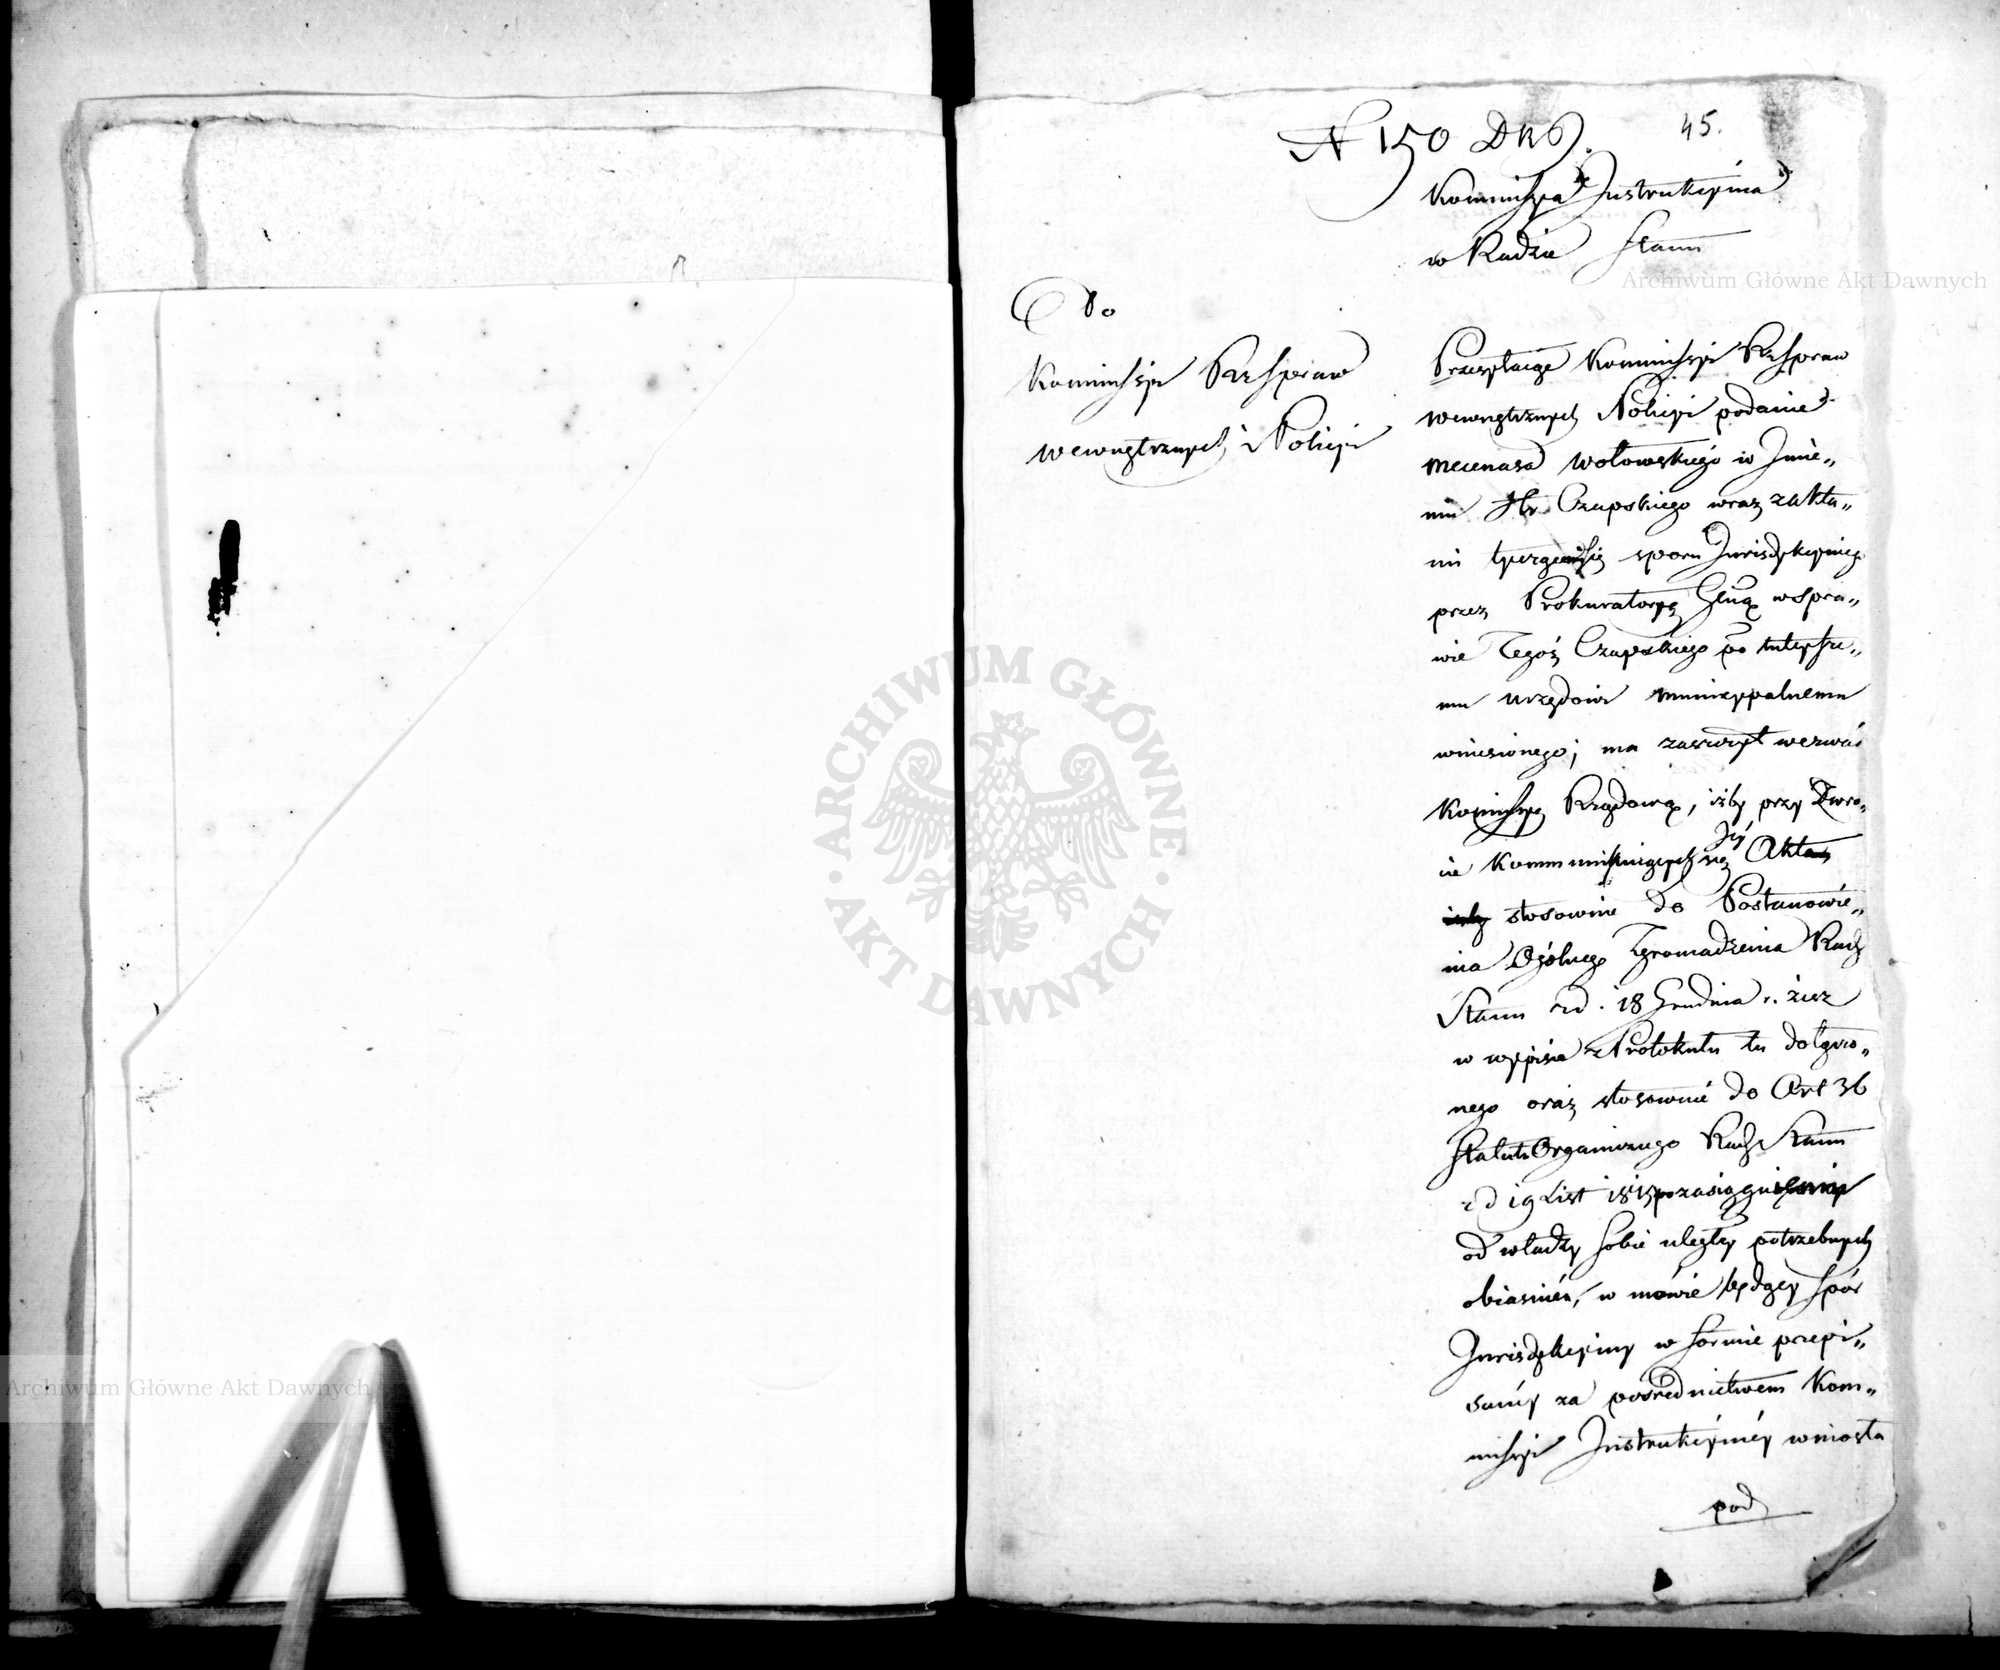 45.
N 150 DRS.
Kommissya Instrukcyina
w Radzie Stanu
Do
Kommissyi Rz Spraw
wewnętrznych i Policyi
Przesyłaiąc Kommissyi Rz Spraw
wewnętrznych i Policyi podanie
mecenasa Wołowskiego w Imie„
niu Hr. Czapskiego wraz z akta„
mi tyczącemi się sporu Jurisdykcyinego
przez Prokuratoryą Glną w spra„
wie Tegoż Czapskiego po tuteysze„
mu urzędowi municypalnemu
wniesionego; ma zaszczyt wezwać
Kommissyę Rządową, iżby przy Zwro„
cie kommunikuiących się Jey Akta
stosownie do Postanowie„
nia Ogólnego Zgromadzenia Rady
Stanu z d. 18 Grudnia r. z
w wypisie z Protokułu tu dołączo„
nego oraz stosownie do Art 36
Statutu Organicznego Rady Stanu
z d 19 List 1815 po zasiągnieniu
od władzy sobie uległey potrzebnych
obiasnień, w mowie będący spór
Jurisdykcyiny w formie przepi„
saney za pośrednictwem Kom„
missyi Instrukcyiney wniosła
pod
Archiwum Główne Akt Dawnych
ARCHIWUM GŁÓWNE
AKT DAWNYCH
Archiwum Główne Akt Dawnych